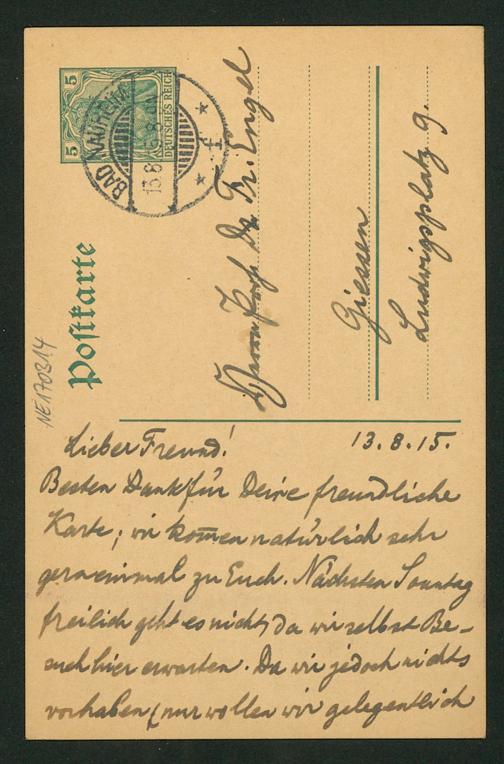 5 5
DEUTSCHES REICH
BAD NAUHEIM
13.8.15
* f *
Postkarte
Herrn Prof. Dr. Fr. Engel
Giessen
Ludwigsplatz 9.
NE170314
Lieber Freund! 13.8.15.
Besten Dank für Deine freundliche
Karte; wir kom̅en natürlich sehr
gern einmal zu Euch. Nächsten Sonntag
freilich geht es nicht, da wir selbst Be-
such hier erwarten. Da wir jedoch nichts
vorhaben (nur wollen wir gelegentlich